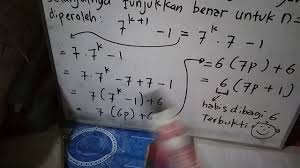 Selanjutnya tunjukkan benar untuk n=
diperoleh: 7^{k+1} - 1 = 7^k . 7 - 1
= 7 . 7^k - 1
= 7 . 7^k - 7 + 7 - 1
= 7 (7^k - 1) + 6
= 7 (6p) + 6
= 6 (7p) + 6
= 6 (7p + 1)
habis dibagi 6
Terbukti